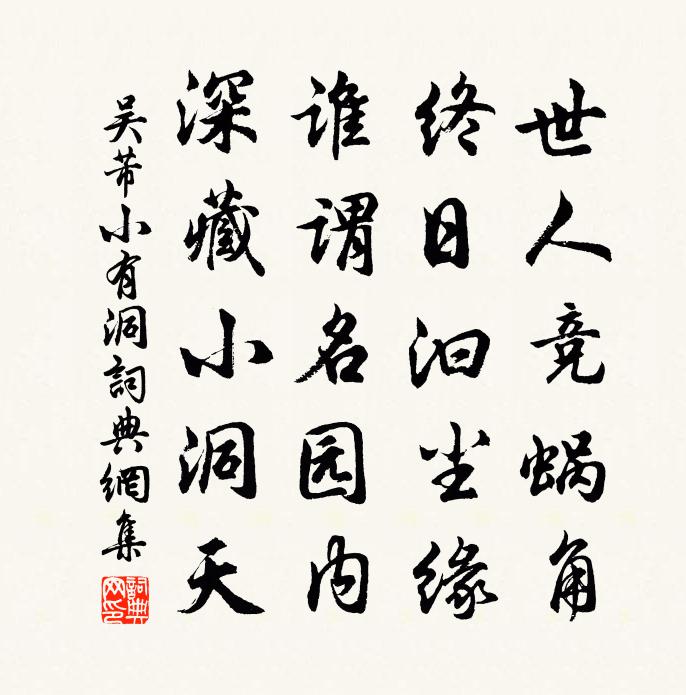 世人竞蜗角
终日汩尘缘
谁谓名园内
深藏小洞天
吴芾小有洞詞典網集
詞典網印